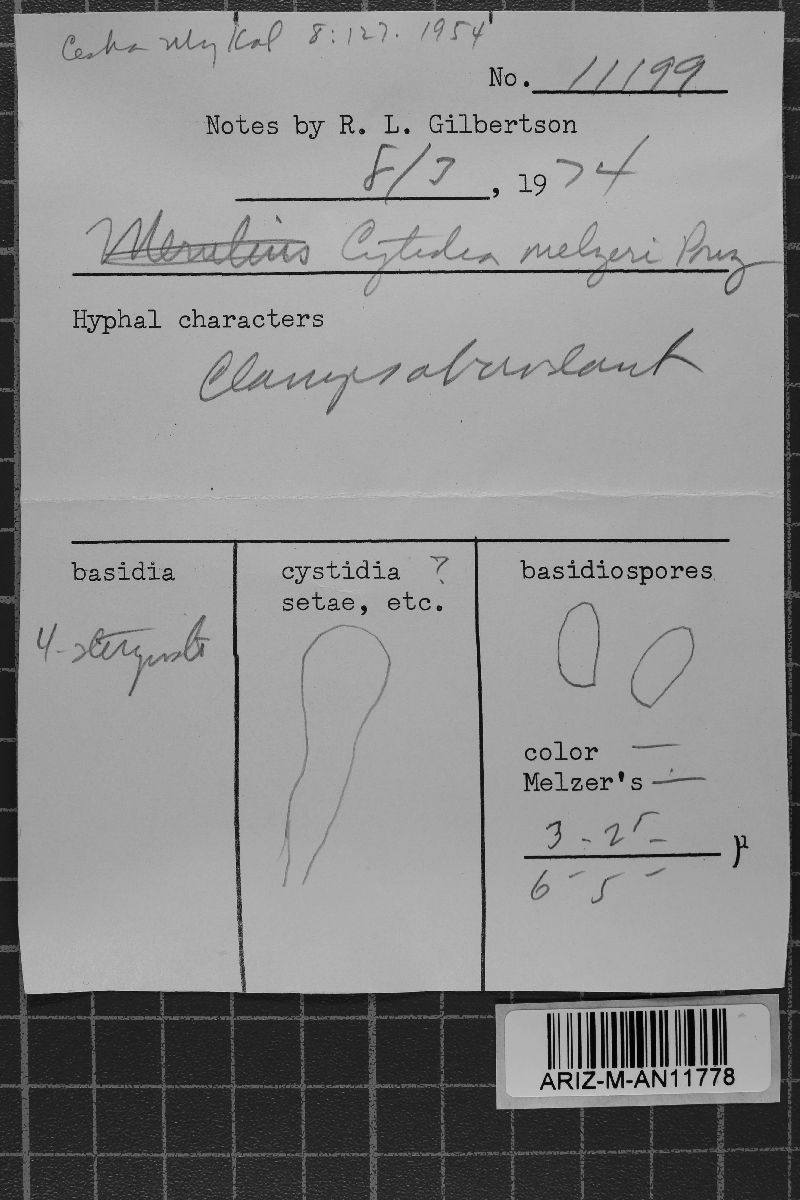 Ceska Mykol 8:127. 1954
No. 11199
Notes by R. L. Gilbertson
8/3, 1974
Merulius Cytidia melzeri Pouz
Hyphal characters
Clamps abundant
basidia
4-sterigmate
cystidia ?
setae, etc.
basidiospores
color —
Melzer's —
3 - 2 5 -
µ
6 - 5 -
ARIZ-M-AN11778